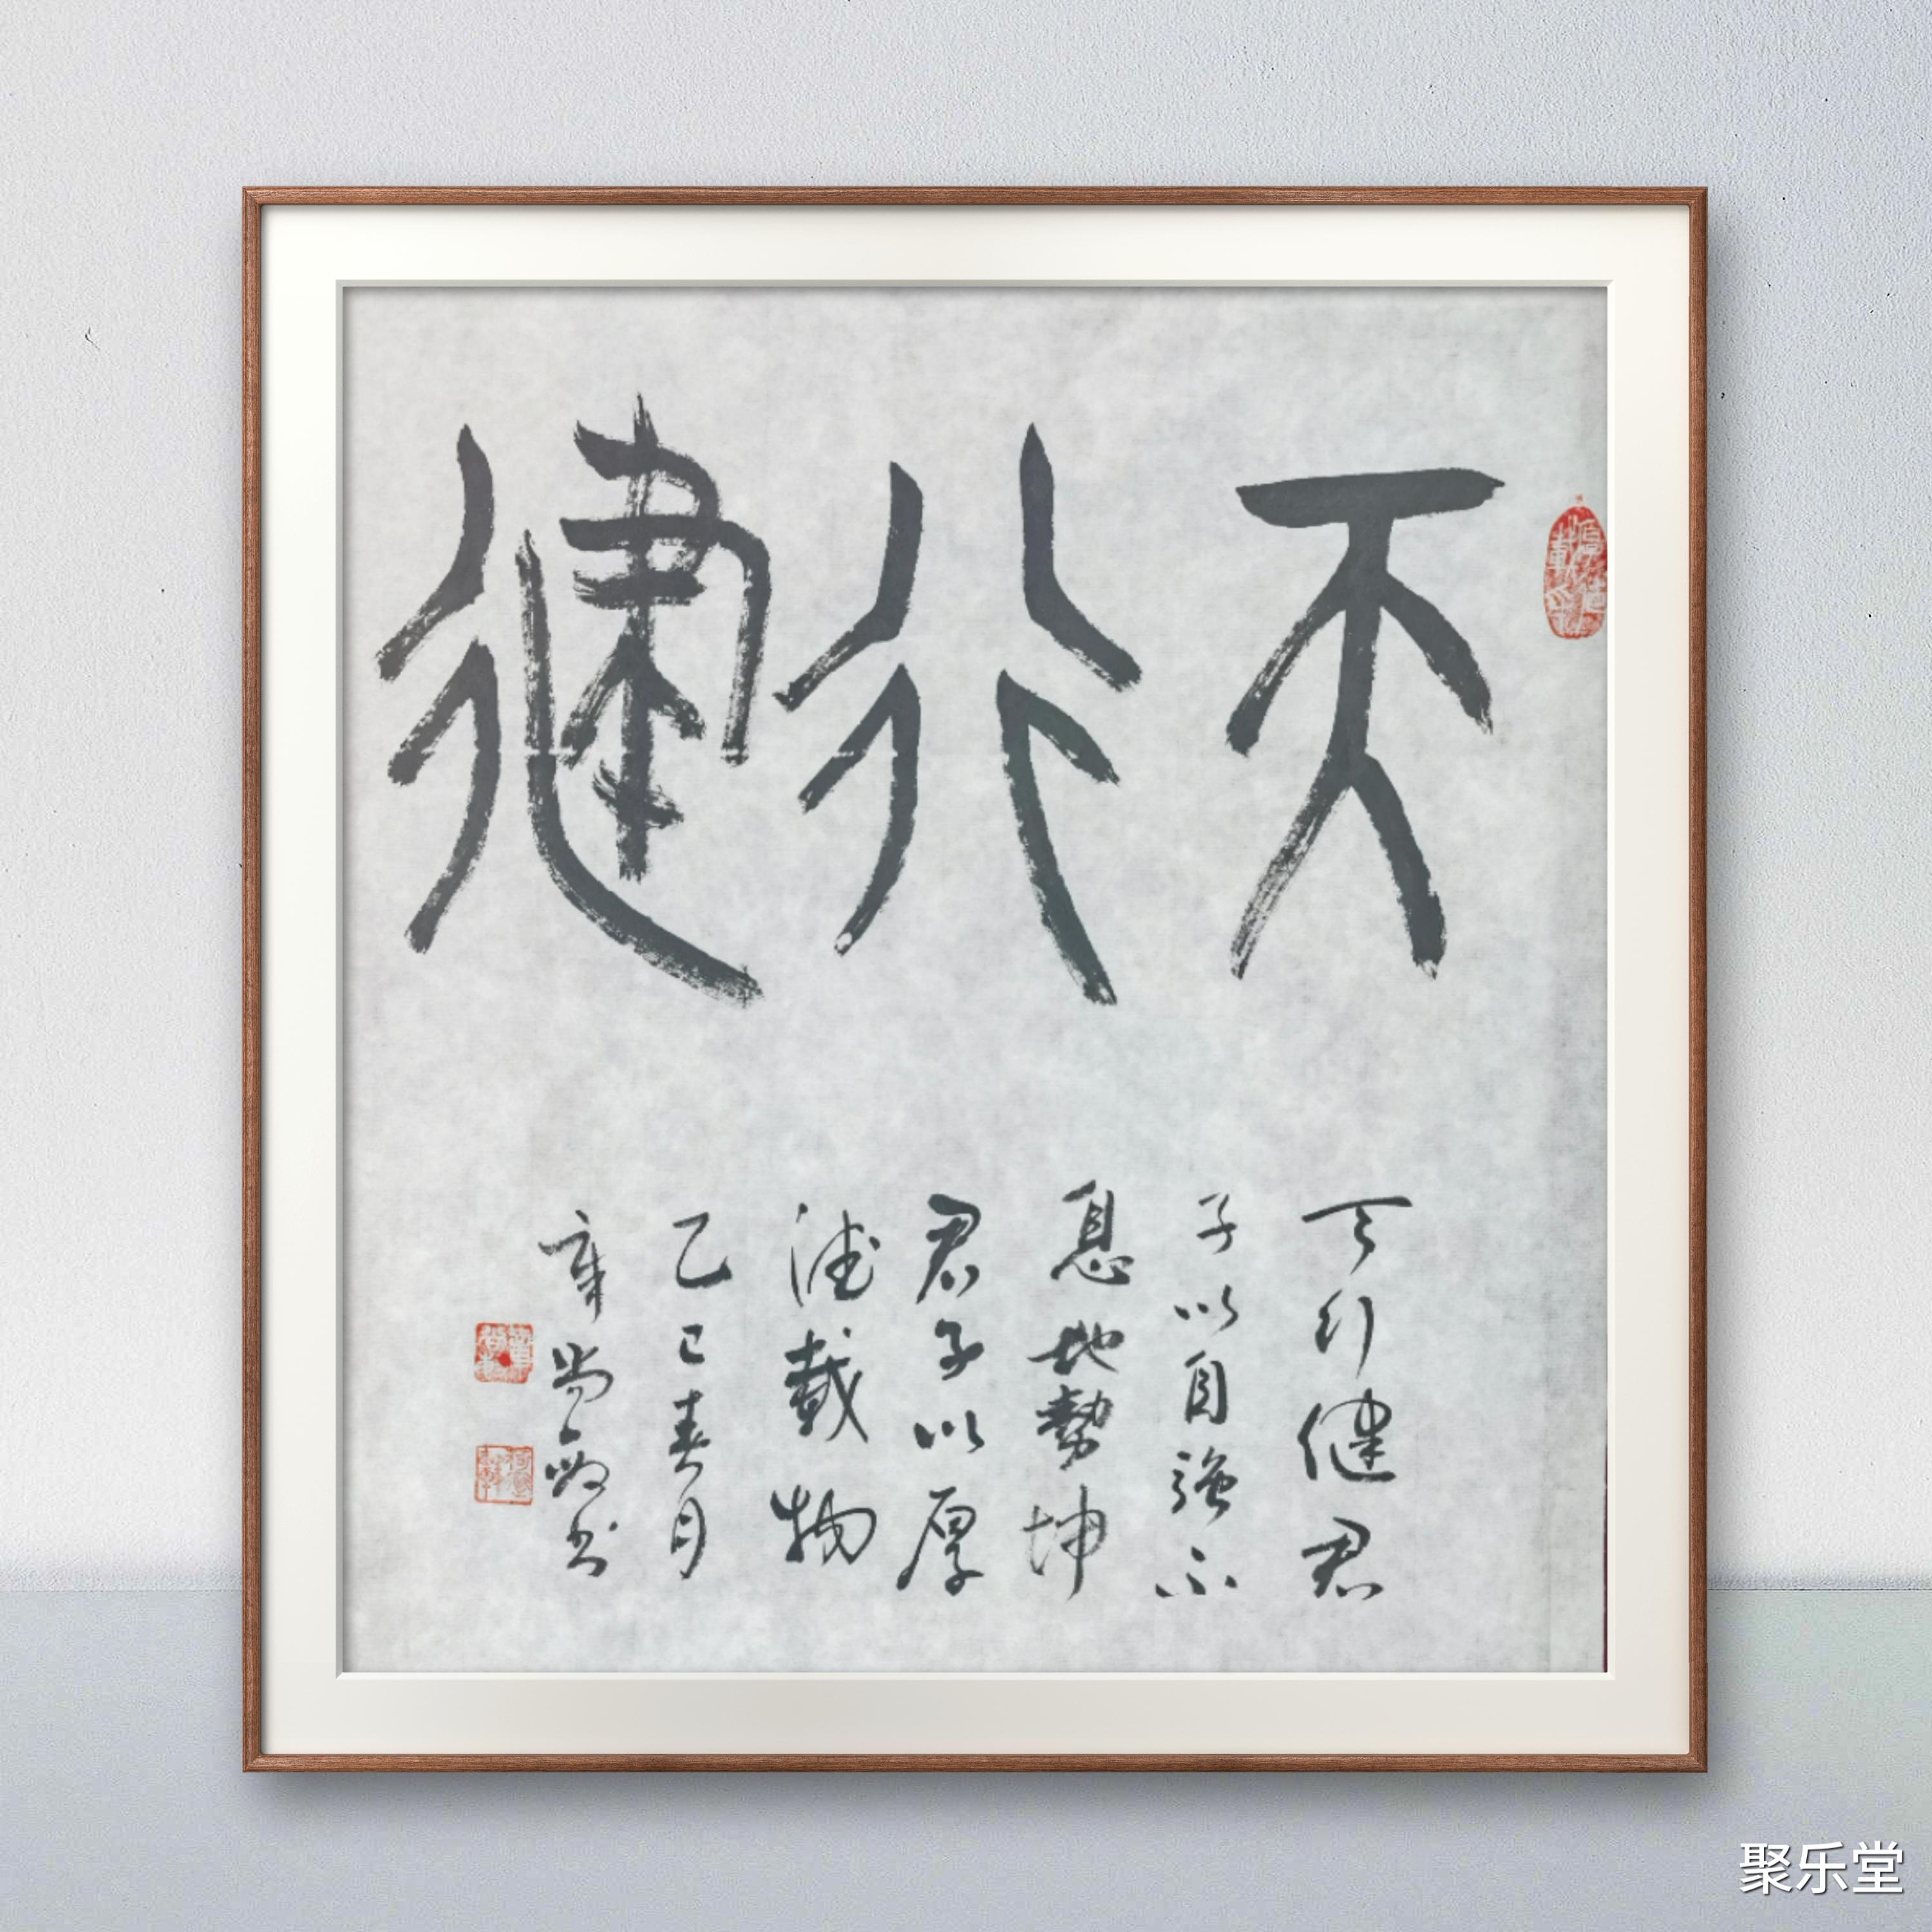 厚德載物
天行健
天行健君
子以自強不
息地勢坤
君子以厚
德載物
乙巳春月
章尚书
聚乐堂